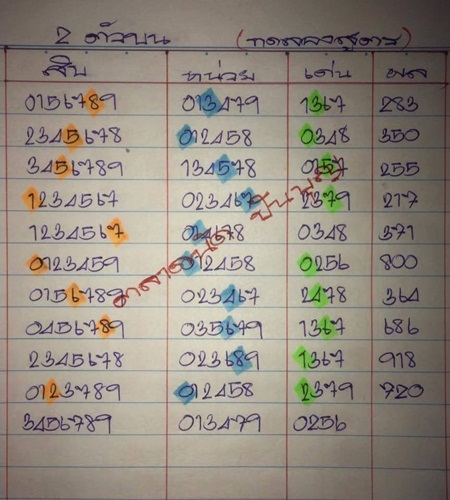 2 ตัวบน (ทดลองสูตร)
สิบ หน่วย เด่น ผล
0156789 013479 1367 283
2345678 012458 0348 350
3456789 134578 0157 255
1234567 023467 2379 217
1234567 014678 0348 371
0123459 012458 0256 800
0156789 023467 2478 364
0456789 035679 1367 686
2345678 023689 1367 918
0123789 012458 2379 720
3456789 013479 0256